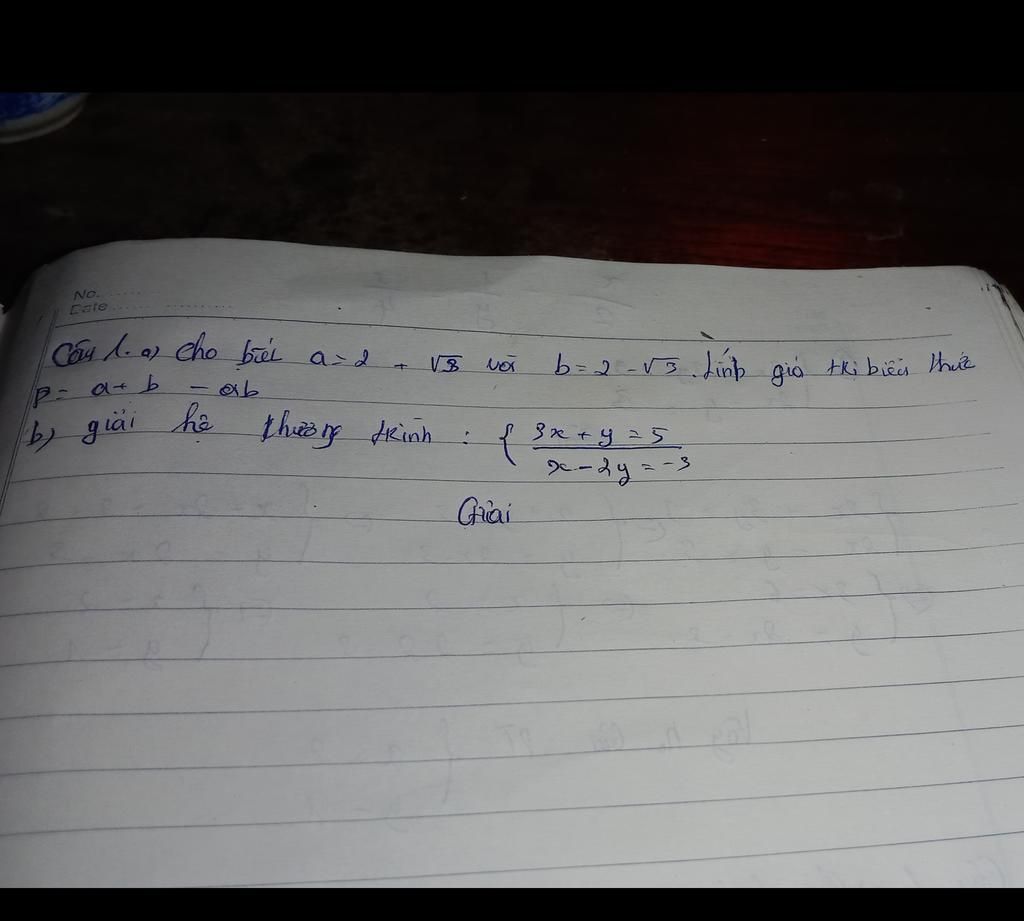 No.
Date
Câu 1. a) Cho biết a = 2 + √3 với b = 2 - √3. tính giá trị biểu thức
P = a + b - ab
b) giải hệ phương trình : { 3x + y = 5
x - 2y = -3
Giải